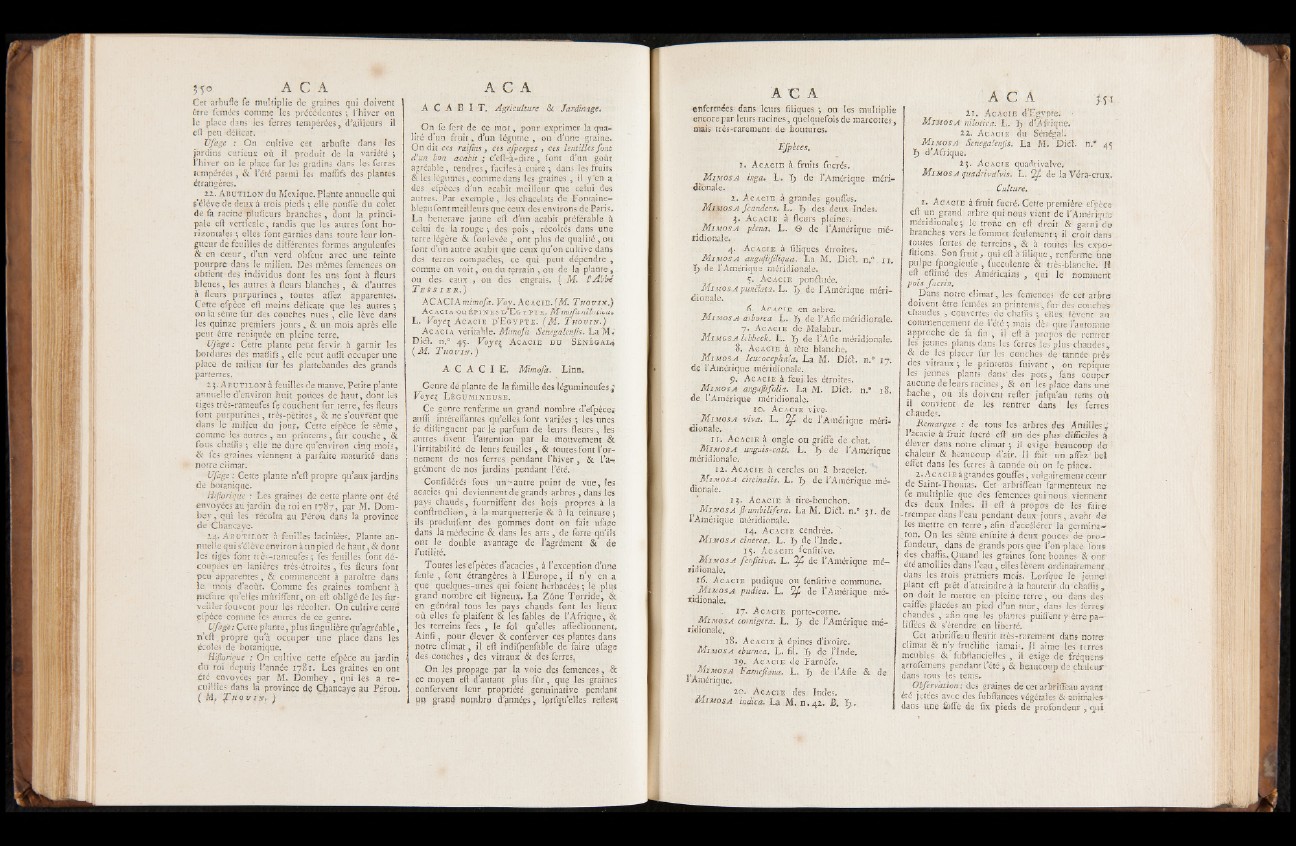 350 A C A
Cet arbuste se multiplie de graines qui doivent
être semées comme les précédentes ; l'hiver on
le place dans les serres tempérées, d'ailleurs il
est peu délicat.
Usage : On cultive cet arbuste dans les
jardins curieux où il produit de la variété ;
l'hiver on le place sur les gradins dans les serres
tempérées, & l'été parmi les massifs des plantes
étrangères.
22. ABUTILON du Mexique. Plante annuelle qui
s'élève de deux à trois pieds ; elle pousse du colet
de sa racine plusieurs branches, dont la princi-
pale est verticale, tandis que les autres sont ho-
rizontales ; elles sont garnies dans toute leur lon-
gueur de feuilles de différentes formes anguleuses
& en cœur, d'un verd obscur avec une teinte
pourpre dans le milieu. Des mêmes semences on
obtient des individus dont les uns sont à fleurs
bleues, les autres à fleurs blanches, & d'autres
à fleurs purpurines, toutes assez apparentes.
Cette espèce est moins délicate que les autres ;
on la sème sur des couches nues, elle lève dans
les quinze premiers jours, & un mois après elle
peut être repiquée en pleine terre.
Usage : Cette plante peut servir à garnir les
bordures des massifs, elle peut aussi occuper une
place de milieu sur les plattebandes des grands
parterres.
23. ABUTILON à feuilles de mauve. Petite plante
annuelle d'environ huit pouces de haut, dont les
tiges très-rameuses se couchent sur terre, ses fleurs
sont purpurines, très-petites, & ne s'ouvrent que
dans le milieu du jour. Cette espèce se sème,
comme les autres, au printems, sur couche, &
sous chassis ; elle ne dure qu'environ cinq mois,
& ses graines viennent à parfaite maturité dans
notre climat.
Usage : Cette plante n'est propre qu'aux jardins
de botanique.
Historique : Les graines de cette plante ont été
envoyées au jardin du roi en 1787, par M. Dom-
bey, qui les récolta au Pérou dans la province
de Chancaye.
24. ABUTILON à feuilles laciniées. Plante an-
nuelle qui s'élève environ à un pied de haut, & dont
les tiges sont très-rameuses ; ses feuilles sont dé-
coupées en lanières très-étroites, ses fleurs sont
peu apparentes, & commencent à paroître dans
le mois d'août. Comme ses graines tombent à
mesure qu'elles mûrissent, on est obligé de les sur-
veiller souvent pour les récolter. On cultive cette
espèce comme les autres de ce genre.
Usage : Cette plante, plus singulière qu'agréable,
n'est propre qu'à occuper une place dans les
écoles de botanique.
Historique : On cultive cette espèce au jardin
du roi depuis l'année 1781. Les graines en ont
été envoyées par M. Dombey, qui les a re-
cueillies dans la province de Chancaye au Pérou.
( M. THOUIN. )
A C A
A C A B I T. Agriculture & Jardinage.
On se sert de ce mot, pour exprimer la qua-
lité d'un fruit, d'un légume, ou d'une graine.
On dit ces raisins, ces asperges, ces lentilles sont
d'un bon acabit ; c'est-à-dire, sont d'un goût
agréable, tendres, faciles à cuire ; dans les fruits
& les légumes, comme dans les graines, il y en a
des espèces d'un acabit meilleur que celui des
autres. Par exemple, les chacelats de Fontaine-
bleau sont meilleurs que ceux des environs de Paris.
La betterave jaune est d'un acabit préférable à
celui de la rouge ; des pois, récoltés dans une
terre légère & soulevée, ont plus de qualité, ou
sont d'un autre acabit que ceux qu'on cultive dans
des terres compactes, ce qui peut dépendre,
comme on voit, ou du terrain, ou de la plante,
ou des eaux, ou des engrais. ( M. l'Abbé
TESSIER.)
ACACIA mimosa. Voy. ACACIE. (M. THOUIN.)
ACACIA OU ÉPINE D'EGYPTE. Mimosa nilotica.
L. Voyez ACACIE D'EGYPTE. (M. THOUIN.)
ACACIA véritable. Mimosa Senegalensis. La M.
Dict. n.° 45. Voyez ACACIE DU SÉNÉGAL
( M. THOUIN. )
A C A C I E. Mimosa. Linn.
Genre de plante de la famille des légumineuses ;
Voyez LÉGUMINEUSE.
Ce genre renferme un grand nombre d'espèces
aussi intéressantes qu'elles sont variées ; les unes
se distinguent par le parfum de leurs fleurs, les
autres fixent l'attention par le mouvement &
l'irritabilité de leurs feuilles, & toutes font l'or-
nement de nos serres pendant l'hiver, & l'a-
grément de nos jardins pendant l'été.
Considérés sous un autre point de vue, les
acacies qui deviennent de grands arbres, dans les
pays chauds, fournissent des bois propres à la
construction, à la marqueterie & à la teinture ;
ils produisent des gommes dont on fait usage
dans la médecine & dans les arts, de sorte qu'ils
ont le double avantage de l'agrément & de
l'utilité.
Toutes les espèces d'acacies, à l'exception d'une
seule, sont étrangères à l'Europe, il n'y en a
que quelques-unes qui soient herbacées ; le plus
grand nombre est ligneux. La Zône Torride, &
en général tous les pays chauds sont les lieux
où elles se plaisent & les sables de l'Afrique, &
les terreins secs, le sol qu'elles affectionnent.
Ainsi, pour élever & conserver ces plantes dans
notre climat, il est indispensable de faire usage
des couches, des vitraux & des serres.
On les propage par la voie des semences, &
ce moyen est d'autant plus sûr, que les graines
conservent leur propriété germinative pendant
un grand nombre d'années, lorsqu'elles restent
A C A
enfermées dans leurs siliques ; on les multiplie
encore par leurs racines, quelquefois de marcottes,
mais très-rarement de boutures.
Espèces.
1. ACACIE à fruits sucrés.
MIMOSA inga. L. ♄ de l'Amérique méri-
dionale.
2. ACACIE à grandes gousses.
MIMOSA scandens. L. ♄ des deux Indes.
3. ACACIE à fleurs pleines.
MIMOSA plena. L. ☉ de l'Amérique mé-
ridionale.
4. ACACIE à siliques étroites.
MIMOSA angustisiliqua. La M. Dict. n.° 11.
♄ de l'Amérique méridionale.
5. ACACIE ponctuée.
MIMOSA punctata. L. ♄ de l'Amérique méri-
dionale.
6. ACACIE en arbre.
MIMOSA arborea. L. ♄ de l'Asie méridionale.
7. ACACIE de Malabar.
MIMOSA lebbeck. L. ♄ de l'Asie méridionale.
8. ACACIE à tête blanche.
MIMOSA leucocephala. La M. Dict. n.° 17.
de l'Amérique méridionale.
9. ACACIE à feuilles étroites.
MIMOSA angustifolia. La M. Dict. n.° 18.
de l'Amérique méridionale.
10. ACACIE vive.
MIMOSA viva. L. ♃ de l'Amérique méri-
dionale.
11. ACACIE à ongle ou griffe de chat.
MIMOSA unguis-cati. L. ♄ de l'Amérique
méridionale.
12. ACACIE à cercles ou à bracelet.
MIMOSA circinalis. L. ♄ de l'Amérique mé-
dionale.
13. ACACIE à tire-bouchon.
MIMOSA La M. Dict. n.° 31. de
l'Amérique méridionale.
14. ACACIE cendrée.
MIMOSA cinerea. L. ♄ de l'Inde.
15. ACACIE sensitive.
MIMOSA sensitiva. L. ♃ de l'Amérique mé-
ridionale.
16. ACACIE pudique ou sensitive commune.
MIMOSA pudica. L. ♃ de l'Amérique mé-
ridionale.
17. ACACIE porte-corne.
MIMOSA cornigera. L. ♄ de l'Amérique mé-
ridionale.
18. ACACIE à épines d'ivoire.
MIMOSA eburnea. L. fil. ♄ de l'Inde.
19. ACACIE de Farnèse.
MIMOSA Farnesiana. L. ♄ de l'Asie & de
l'Amérique.
20. ACACIE des Indes.
MIMOSA indica. La M. n. 42. B. ♄.
A C A 351
21. ACACIE d'Egypte.
MIMOSA nilotica. L. ♄ d'Afrique.
22. ACACIE du Sénégal.
MIMOSA Senegalensis. La M. Dict. n.° 45
♄ d'Afrique.
23. ACACIE quadrivalve.
MIMOSA quadrivalvis. L. ♃ de la Véra-crux.
Culture.
1. ACACIE à fruit sucré. Cette première espèce
est un grand arbre qui nous vient de l'Amérique
méridionale ; le tronc en est droit & garni de
branches vers le sommet seulement ; il croît dans
toutes sortes de terreins, & à toutes les expo-
sitions. Son fruit, qui est à silique, renferme une
pulpe spongieuse, succulente & très-blanche. Il
est estimé des Américains, qui le nomment
pois sucrin.
Dans notre climat, les semences de cet arbre
doivent être semées au printems, sur des couches
chaudes, couvertes de chassis ; elles lèvent au
commencement de l'été ; mais dès que l'automne
approche de sa fin, il est à propos de rentrer
les jeunes plants dans les serres les plus chaudes,
& de les placer sur les couches de tannée près
des vitraux ; le printems suivant, on repique
les jeunes plants dans des pots, sans couper
aucune de leurs racines, & on les place dans une
bache, où ils doivent rester jusqu'au tems où
il convient de les rentrer dans les serres
chaudes.
Remarque : de tous les arbres des Antilles,
l'acacie à fruit sucré est un des plus difficiles à
élever dans notre climat ; il exige beaucoup de
chaleur & beaucoup d'air. Il fait un assez bel
effet dans les serres à tannée où on le place.
2. ACACIE à grandes gousses, vulgairement cœur
de Saint-Thomas. Cet arbrisseau sarmenteux ne
se multiplie que des semences qui nous viennent
des deux Indes. Il est à propos de les faire
tremper dans l'eau pendant deux jours, avant de
les mettre en terre, afin d'accélérer la germina-
tion. On les sème ensuite à deux pouces de pro-
fondeur, dans de grands pots que l'on place sous
des chassis. Quand les graines sont bonnes & ont
été amollies dans l'eau, elles lèvent ordinairement
dans les trois premiers mois. Lorsque le jeune
plant est prêt d'atteindre à la hauteur du chassis,
on doit le mettre en pleine terre, ou dans des
caisses placées au pied d'un mur, dans les serres
chaudes, afin que les plantes puissent y être pa-
lissées & s'étendre en liberté.
Cet arbrisseau fleurit très-rarement dans notre
climat & n'y fructifie jamais. Il aime les terres
meubles & substancielles, il exige de fréquens
arrosemens pendant l'été, & beaucoup de chaleur
dans tous les tems.
Observation : des graines de cet arbrisseau ayant
été jettées avec des substances végétales & animales
dans une fosse de six pieds de profondeur, qui